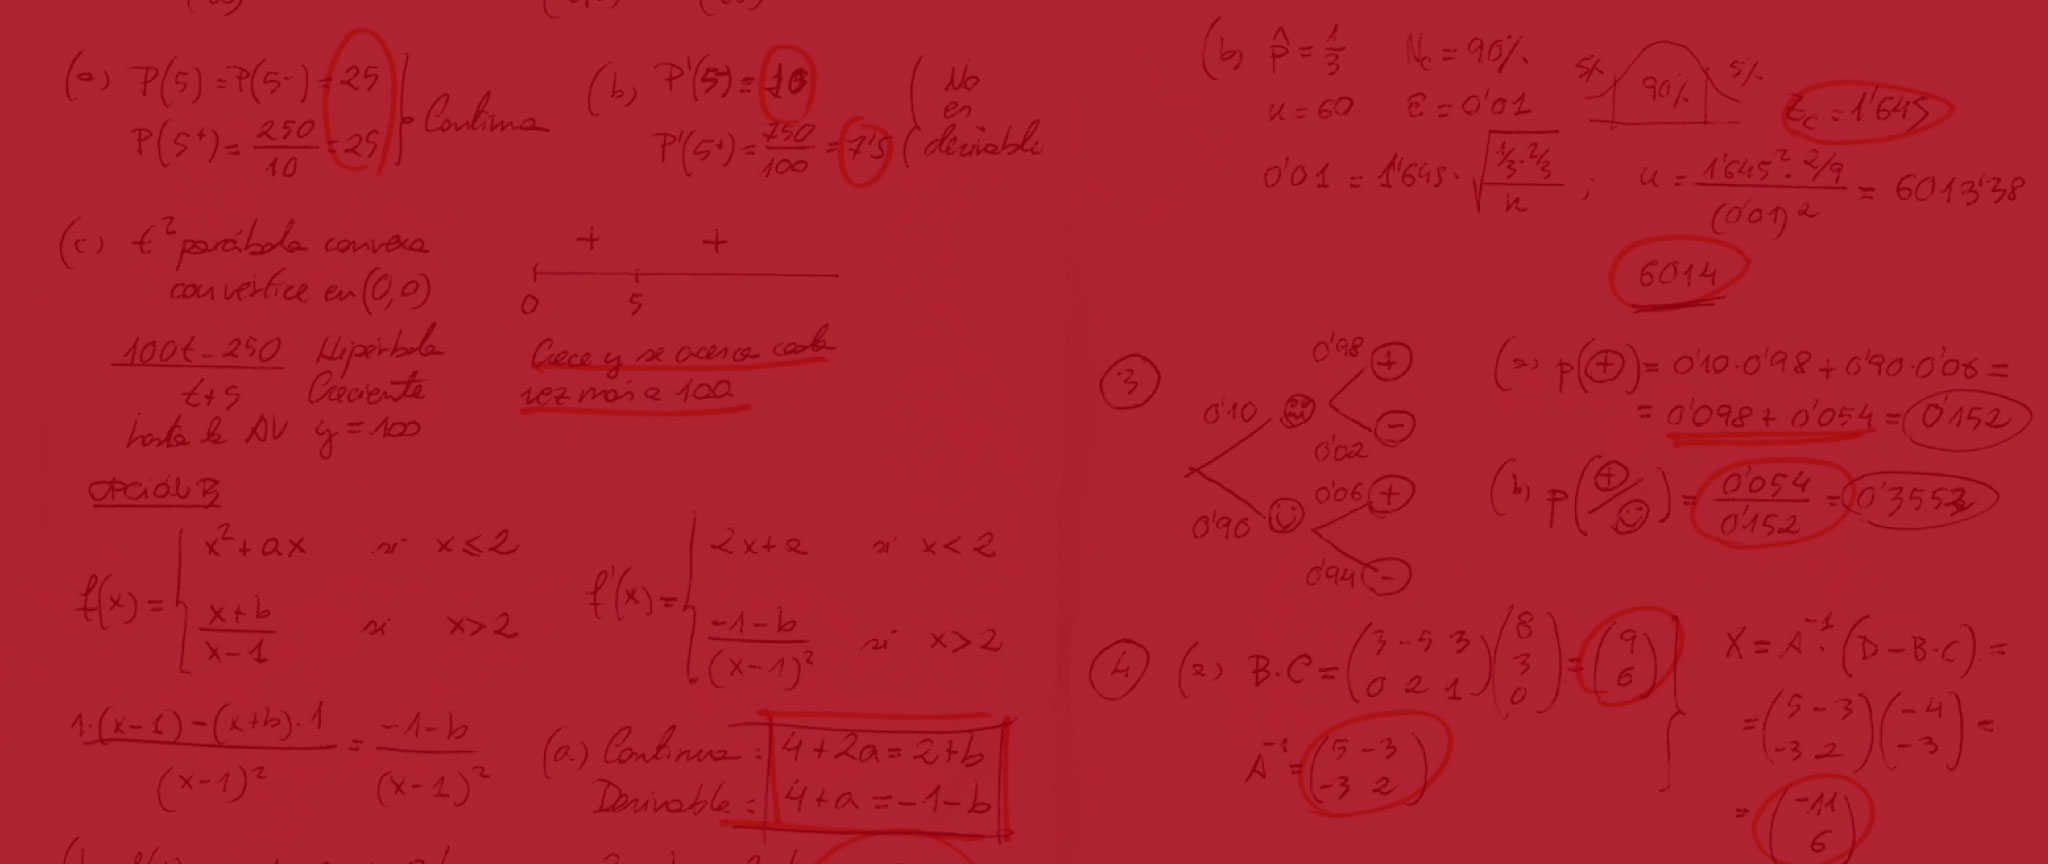 (a) P(5) = P(5-) = 25
P(5+) = 250/10 = 25
Continua
(b) P'(5-) = 10
P'(5+) = 750/100 = 7'5
No
es
derivable
(c) t² parábola convexa
con vértice en (0,0)
+ +
0 5
100t - 250 / t+5 Hipérbola
Creciente
hasta la AV y = 100
Crece y se acerca cada
vez más a 100
OPCIÓN B
f(x) = { x² + ax si x ≤ 2
x+b / x-1 si x > 2
f'(x) = { 2x + a si x < 2
-1-b / (x-1)² si x > 2
1·(x-1) - (x+b)·1 / (x-1)² = -1-b / (x-1)²
(a) Continua: 4 + 2a = 2 + b
Derivable: 4 + a = -1 - b
(b) p̂ = 1/3 Nc = 90%
n = 60 E = 0'01
5% 90% 5%
Zc = 1'645
0'01 = 1'645 · √(1/3 · 2/3 / n) ; n = 1'645² · 2/9 / (0'01)² = 6013'38
6014
3
0'10 0'98 +
0'02 -
0'90 0'06 +
0'94 -
(a) p(+) = 0'10·0'98 + 0'90·0'06 =
= 0'098 + 0'054 = 0'152
(b) p(+/☺) = 0'054/0'152 = 0'3553
4 (a) B·C = (3 -5 3
0 2 1) (8
3
0) = (9
6)
A⁻¹ = (5 -3
-3 2)
X = A⁻¹·(D - B·C) =
= (5 -3
-3 2) (-4
-3) =
= (-11
6)